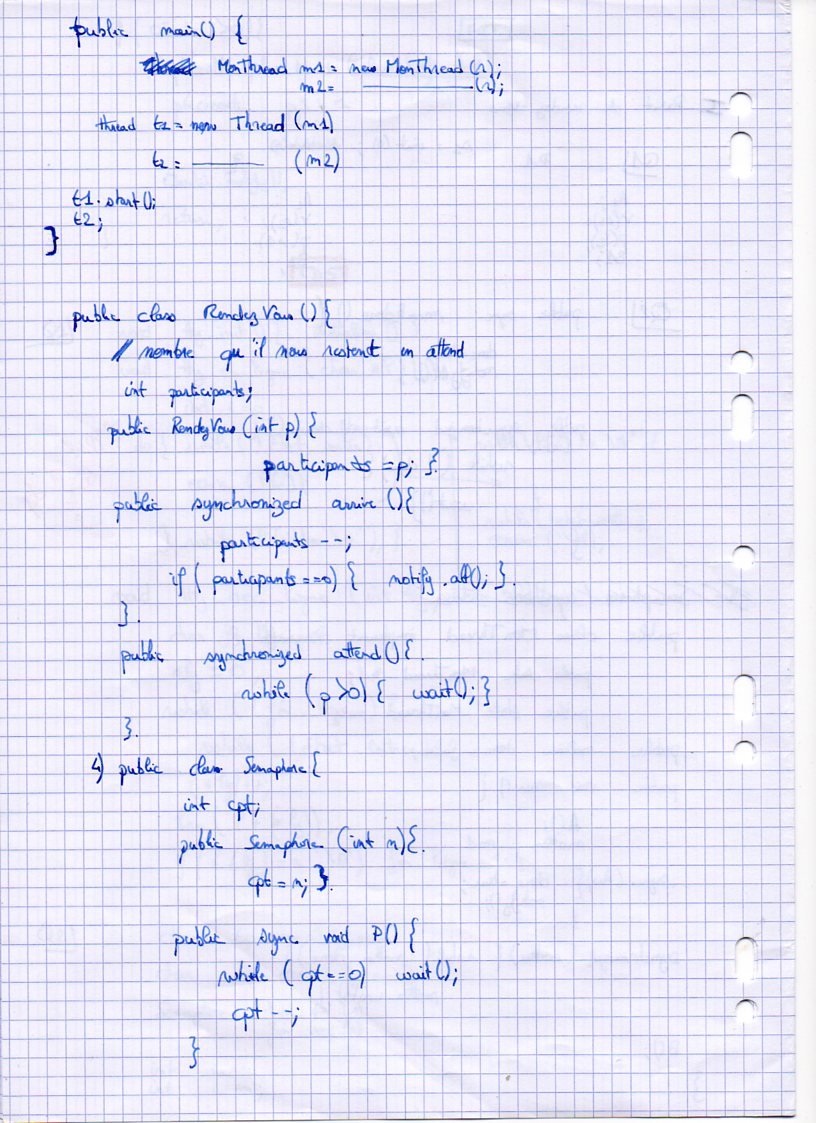 public main() {
MonThread m1 = new MonThread (r);
m2 = ———— (r);
thread t1 = new Thread (m1)
t2 = ———— (m2)
t1.start();
t2;
}
public class RendezVous () {
// nombre qu'il nous restent en attend
int participants;
public RendezVous (int p) {
participants = p; }.
public synchronized arrive () {
participants --;
if ( participants == 0) { notify.all(); }.
}.
public synchronized attend () {.
while (p > 0) { wait(); }
}.
4) public class Semaphore {
int cpt;
public Semaphore (int n) {.
cpt = n; }.
public sync void P() {
while ( cpt == 0) wait();
cpt --;
}